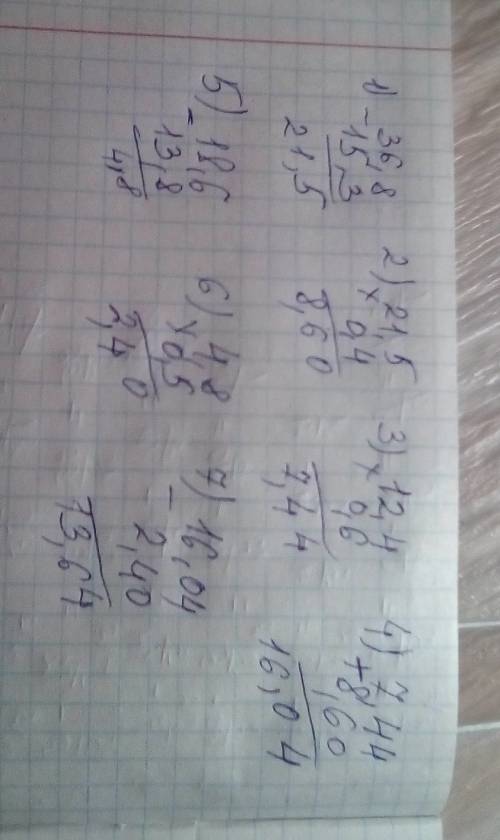 1) 36,8
- 15,3
21,5
2) 21,5
× 0,4
8,60
3) 12,4
× 0,6
7,44
4) 7,44
+ 8,60
16,04
5) 18,6
- 13,8
4,8
6) 4,8
× 0,5
2,40
7) 16,04
- 2,40
13,64